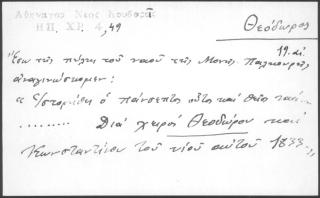 Ἀθηναγόρ. Νέος Κουβαρᾶς
ΗΠ. ΧΡ. 4, 49
Θεόδωρος
19. αἰ.
Ἔσω τῆς πύλης τοῦ ναοῦ τῆς Μονῆς Παλιουρῆς
ἀναγινώσκομεν:
"Ἱστορήθη ὁ πάνσεπτος οὗτος καὶ θεῖος ναὸς
......... Διὰ χειρὸς Θεοδώρου καὶ
Κωνσταντίνου τοῦ υἱοῦ αὐτοῦ 1833."